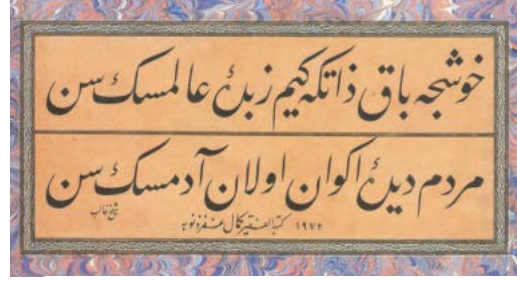 خوشجه باق ذاتكه كيم زبدۀ عالمسك سن
مردم ديدۀ اكوان اولان آدمسك سن
شيخ غالب
كتبه الفقير كمال غفر ذنوبه ١٩٧٢